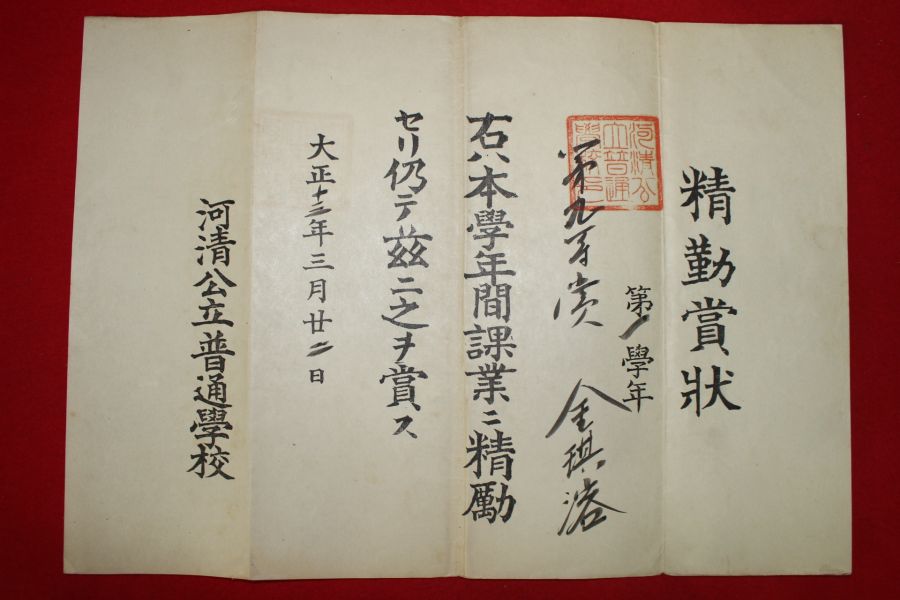 精勤賞狀
第一學年
第九等賞 金琪濬
右ハ本學年間課業ニ精勵
セリ仍テ玆ニ之ヲ賞ス
大正十三年三月廿二日
河清公立普通學校
河清公
立普通
學校印